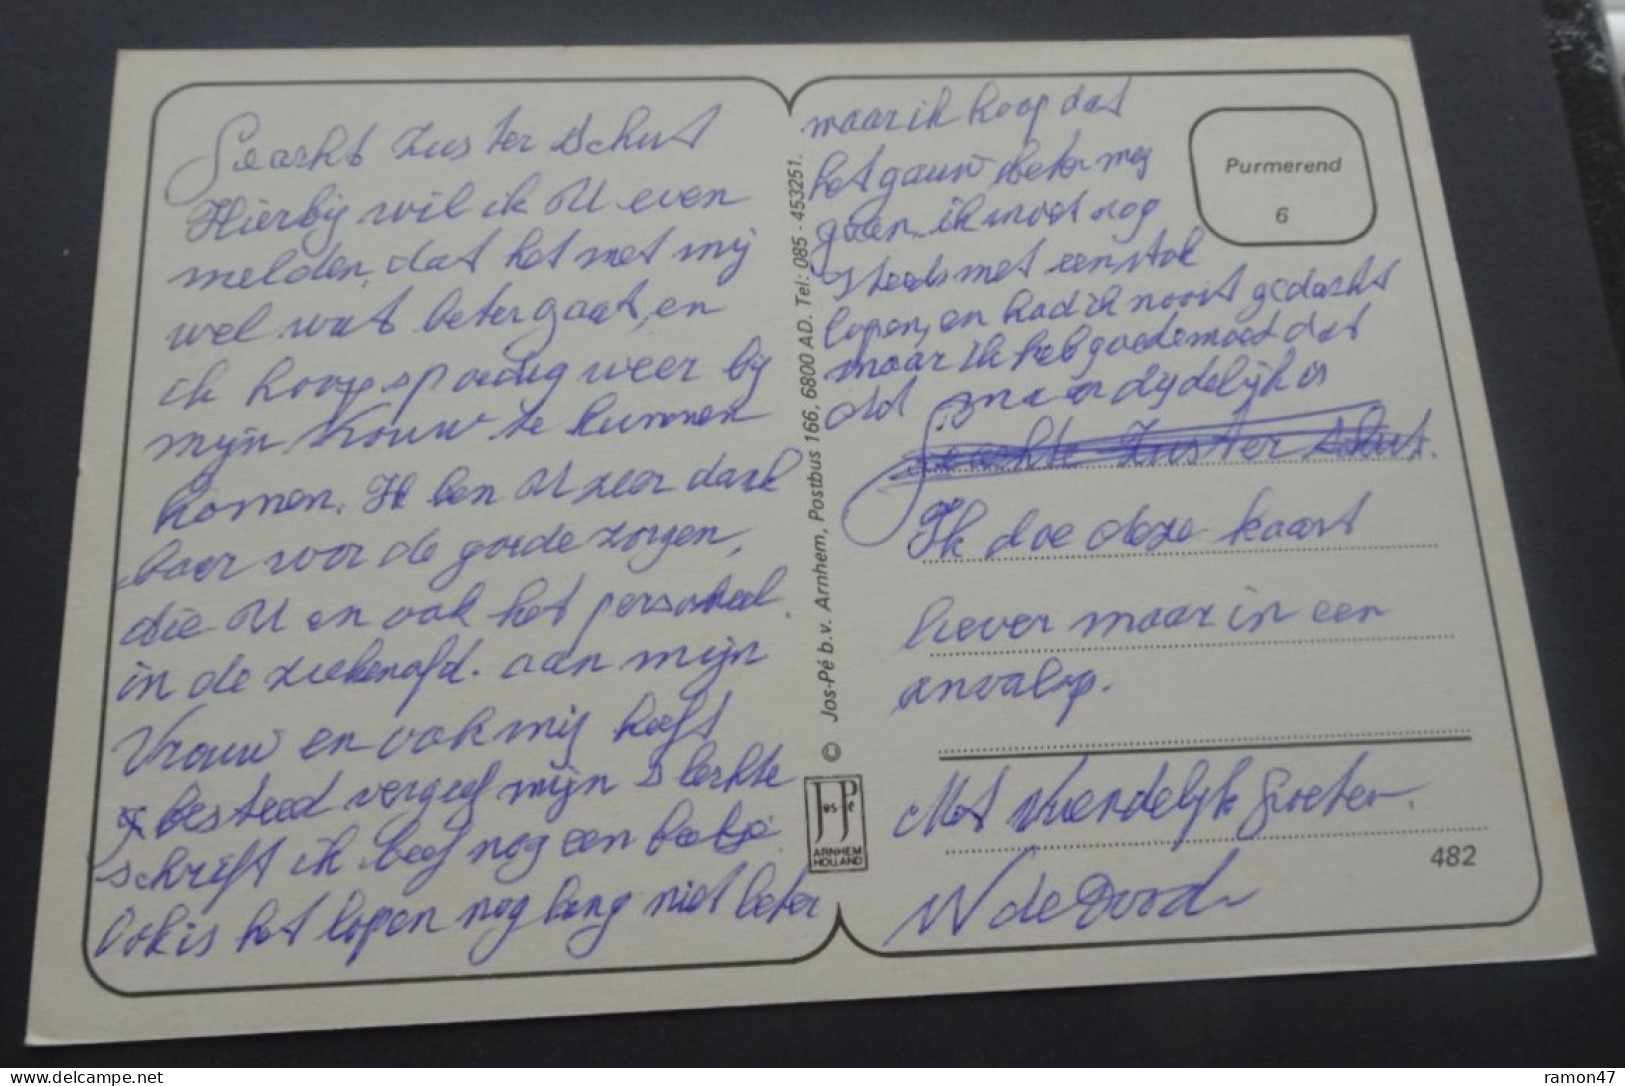 Geacht Zuster Schut
Hierbij wil ik U even
melden, dat het met mij
wel wat beter gaat, en
ik hoop spoedig weer bij
mijn Vrouw te kunnen
komen. Ik ben U zeer dank
baar voor de goede zorgen,
die U en ook het personeel
in de ziekenafd. aan mijn
Vrouw en ook mij heeft
besteed vergeef mijn slechte
schrift ik beef nog een beetje
Ook is het lopen nog lang niet beter
maar ik hoop dat
het gauw beter mag
gaan. ik moet nog
steeds met een stok
lopen, en had ik nooit gedacht
maar ik heb goede moet dat
dit maar tijdelijk is
Geachte Zuster Schut.
Ik doe deze kaart
liever maar in een
anvalop.
Met Vriendelijk Groeten.
W de Dood
Purmerend
6
© Jos-Pé b.v. Arnhem, Postbus 166, 6800 AD. Tel: 085 - 453251.
Jos-Pé
ARNHEM
HOLLAND
482
ramon47